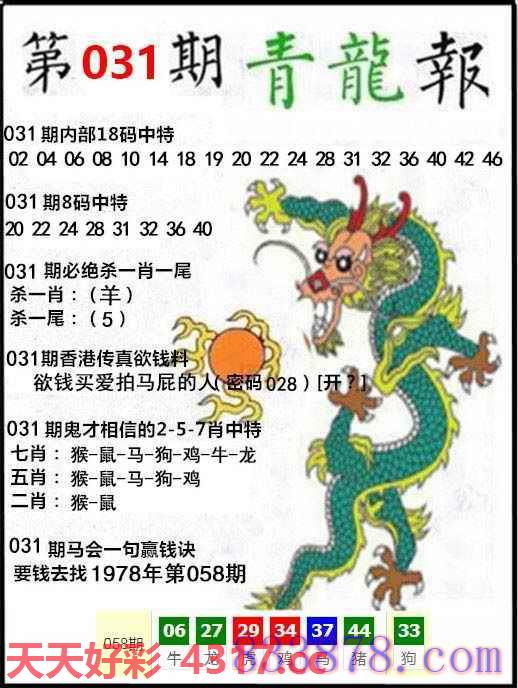 第031期青龍報
031期内部18码中特
02 04 06 08 10 14 18 19 20 22 24 28 31 32 36 40 42 46
031期8码中特
20 22 24 28 31 32 36 40
031期必绝杀一肖一尾
杀一肖：（羊）
杀一尾：（5）
031期香港传真欲钱料
欲钱买爱拍马屁的人（密码028）[开？]
031期鬼才相信的2-5-7肖中特
七肖：猴-鼠-马-狗-鸡-牛-龙
五肖：猴-鼠-马-狗-鸡
二肖：猴-鼠
031期马会一句赢钱诀
要钱去找1978年第058期
058期 06 27 29 34 37 44 33
牛 龙 虎 鸡 马 猪 狗
天天好彩 4317.cc
838878.com